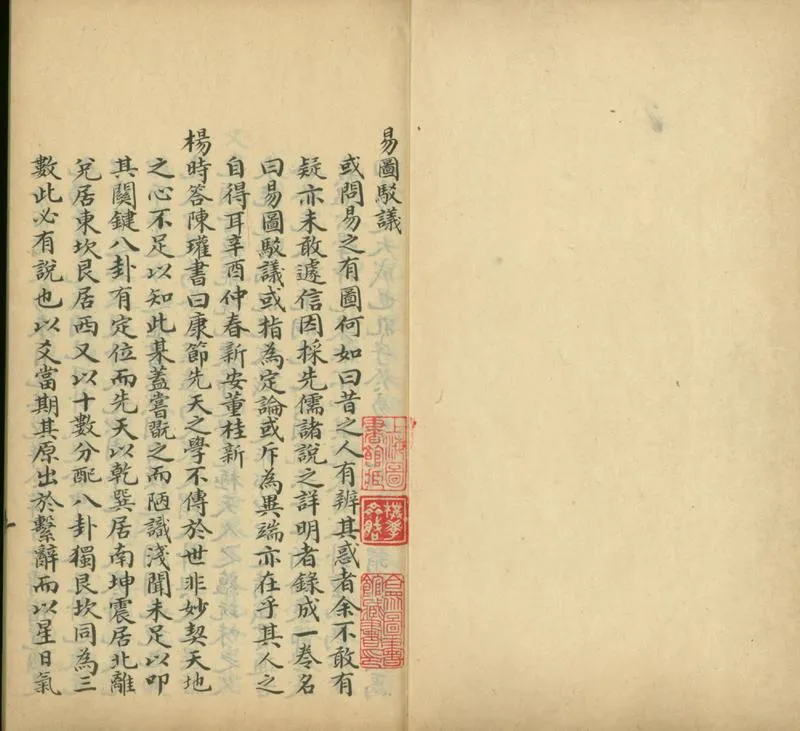 易圖駁議
或問易之有圖何如曰昔之人有辨其惑者余不敢有
疑亦未敢遽信因採先儒諸說之詳明者錄成一卷名
曰易圖駁議或指為定論或斥為異端亦在乎其人之
自得耳辛酉仲春新安董桂新
楊時答陳瓘書曰康節先天之學不傳於世非妙契天地
之心不足以知此某蓋嘗翫之而陋識淺聞未足以叩
其關鍵八卦有定位而先天以乾巽居南坤震居北離
兌居東坎艮居西又以十數分配八卦獨艮坎同為三
數此必有說也以爻當期其原出於繫辭而以星日氣